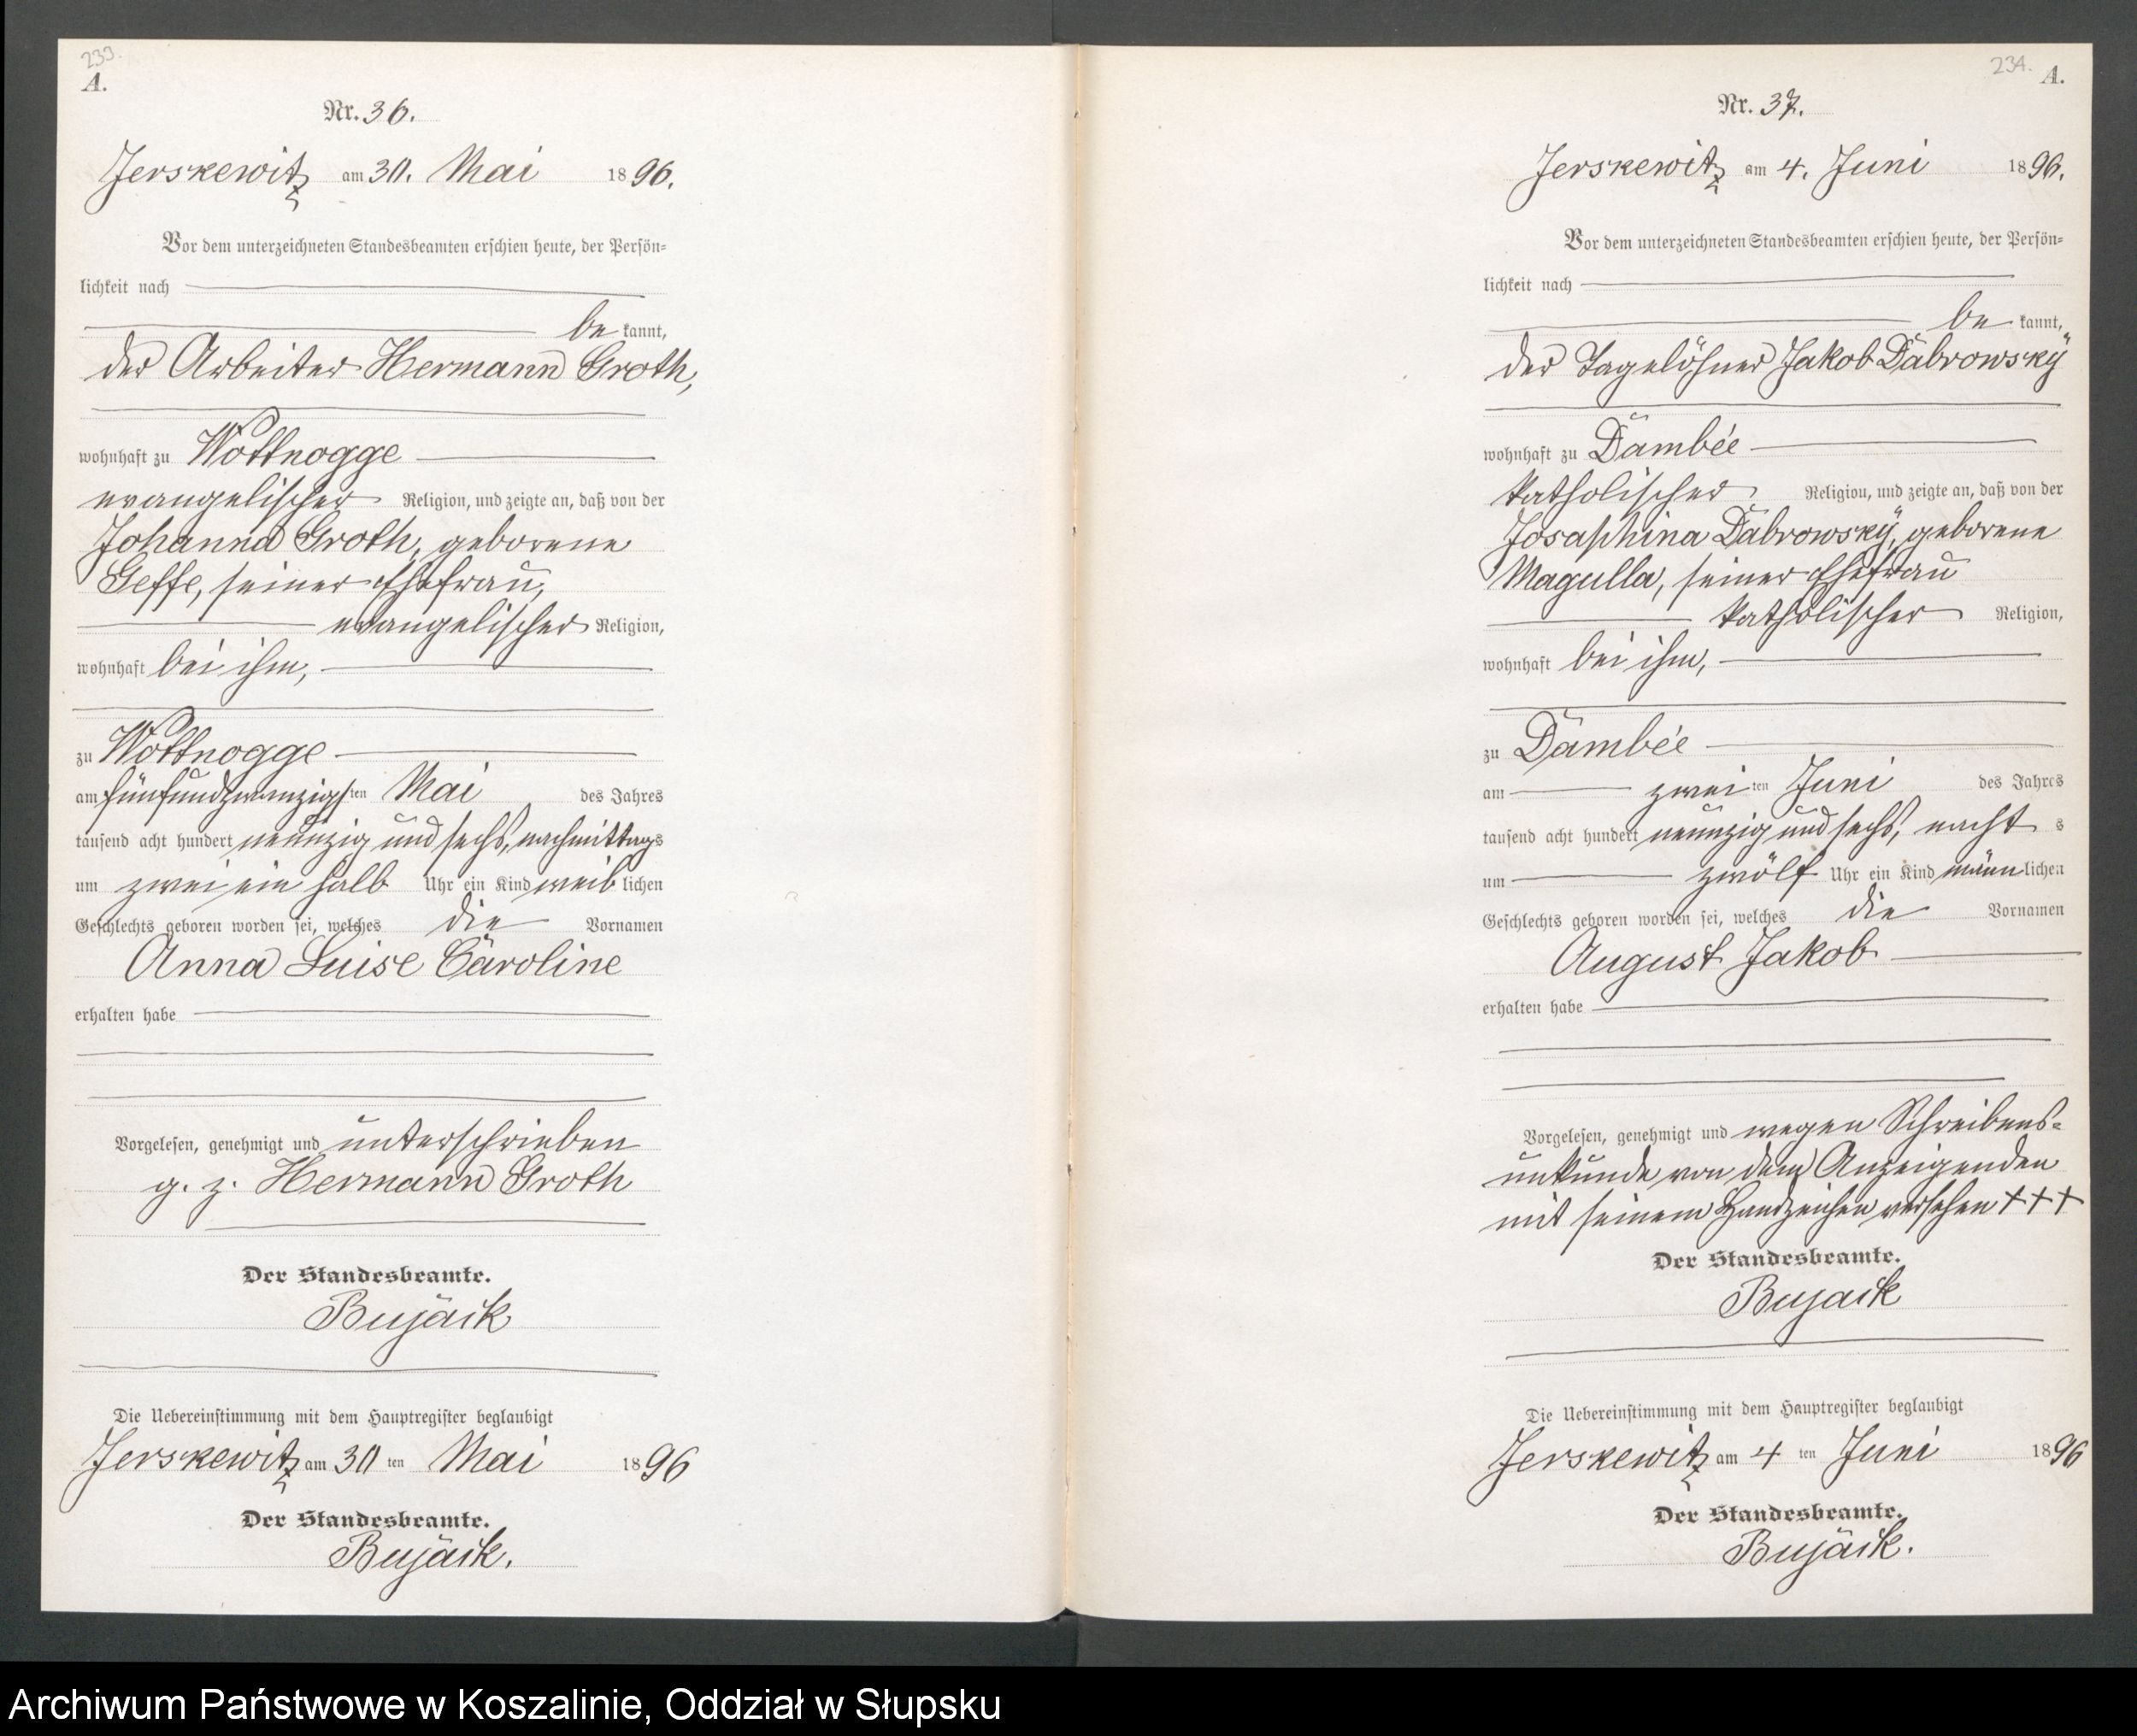 233.
A.
Nr. 36.
Jerskewitz am 30. Mai 1896.
Vor dem unterzeichneten Standesbeamten erschien heute, der Persön-
lichkeit nach
be kannt,
der Arbeiter Hermann Groth,
wohnhaft zu Wottnogge
evangelischer Religion, und zeigte an, daß von der
Johanna Groth, geborene
Geffe, seiner Ehefrau,
evangelischer Religion,
wohnhaft bei ihm,
zu Wottnogge
am fünfundzwanzigsten Mai des Jahres
tausend acht hundert neunzig und sechs, nachmittags
um zwei ein halb Uhr ein Kind weiblichen
Geschlechts geboren worden sei, welches die Vornamen
Anna Luise Caroline
erhalten habe
Vorgelesen, genehmigt und unterschrieben
g. z. Hermann Groth
Der Standesbeamte.
Bujack
Die Uebereinstimmung mit dem Hauptregister beglaubigt
Jerskewitz am 30 ten Mai 1896
Der Standesbeamte.
Bujack.
234.
A.
Nr. 37.
Jerskewitz am 4. Juni 1896.
Vor dem unterzeichneten Standesbeamten erschien heute, der Persön-
lichkeit nach
be kannt,
der Tagelöhner Jakob Dabrowsky
wohnhaft zu Dambée
katholischer Religion, und zeigte an, daß von der
Josaphina Dabrowsky, geborene
Magulla, seiner Ehefrau
katholischer Religion,
wohnhaft bei ihm,
zu Dambée
am zwei ten Juni des Jahres
tausend acht hundert neunzig und sechs, nacht s
um zwölf Uhr ein Kind männlichen
Geschlechts geboren worden sei, welches die Vornamen
August Jakob
erhalten habe
Vorgelesen, genehmigt und wegen Schreibens-
unkunde von dem Anzeigenden
mit seinem Handzeichen versehen +++
Der Standesbeamte.
Bujack
Die Uebereinstimmung mit dem Hauptregister beglaubigt
Jerskewitz am 4 ten Juni 1896
Der Standesbeamte.
Bujack.
Archiwum Państwowe w Koszalinie, Oddział w Słupsku